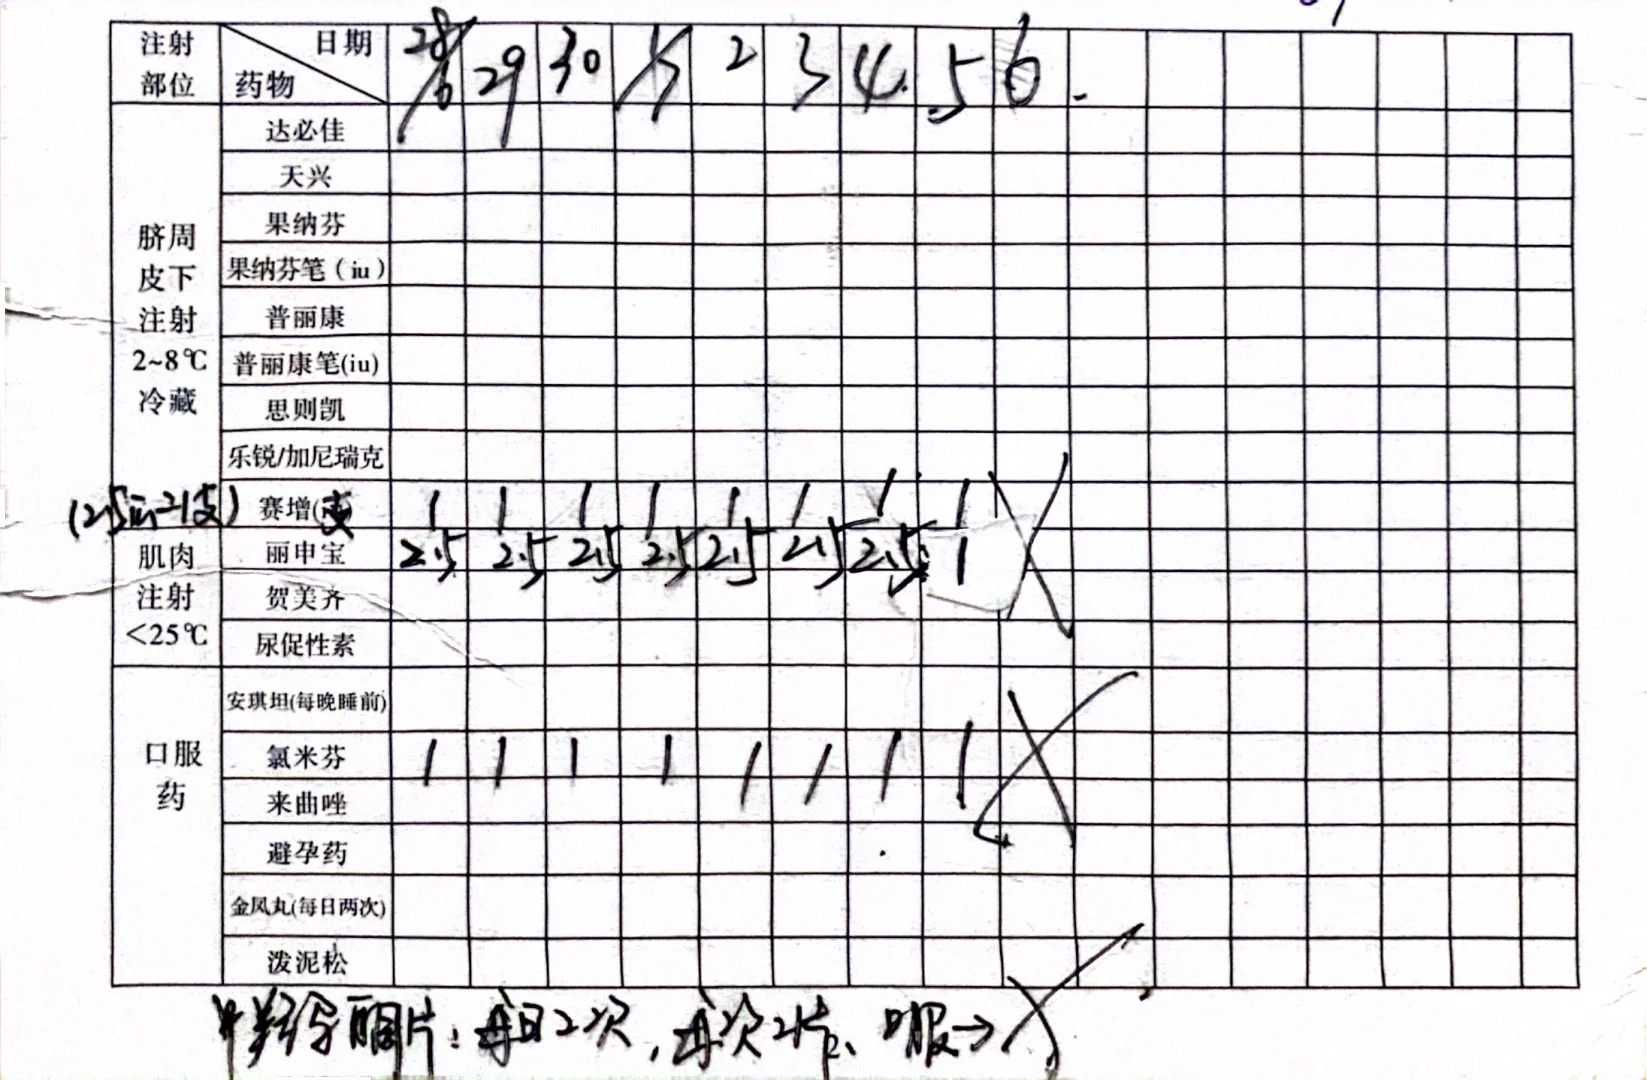 注射部位 日期 药物 28/6 29 30 1/7 2 3 4. 5 6
脐周皮下注射2~8℃冷藏
达必佳
天兴
果纳芬
果纳芬笔（iu）
普丽康
普丽康笔(iu)
思则凯
乐锐/加尼瑞克
赛增(支) 1 1 1 1 1 1 1 1
肌肉注射<25℃
丽申宝 2.5 2.5 2.5 2.5 2.5 2.5 2.5 1
贺美齐
尿促性素
口服药
安琪坦(每晚睡前)
氯米芬 1 1 1 1 1 1 1 1
来曲唑
避孕药
金凤丸(每日两次)
泼泥松
甲羟孕酮片：每日2次，每次2片、口服→